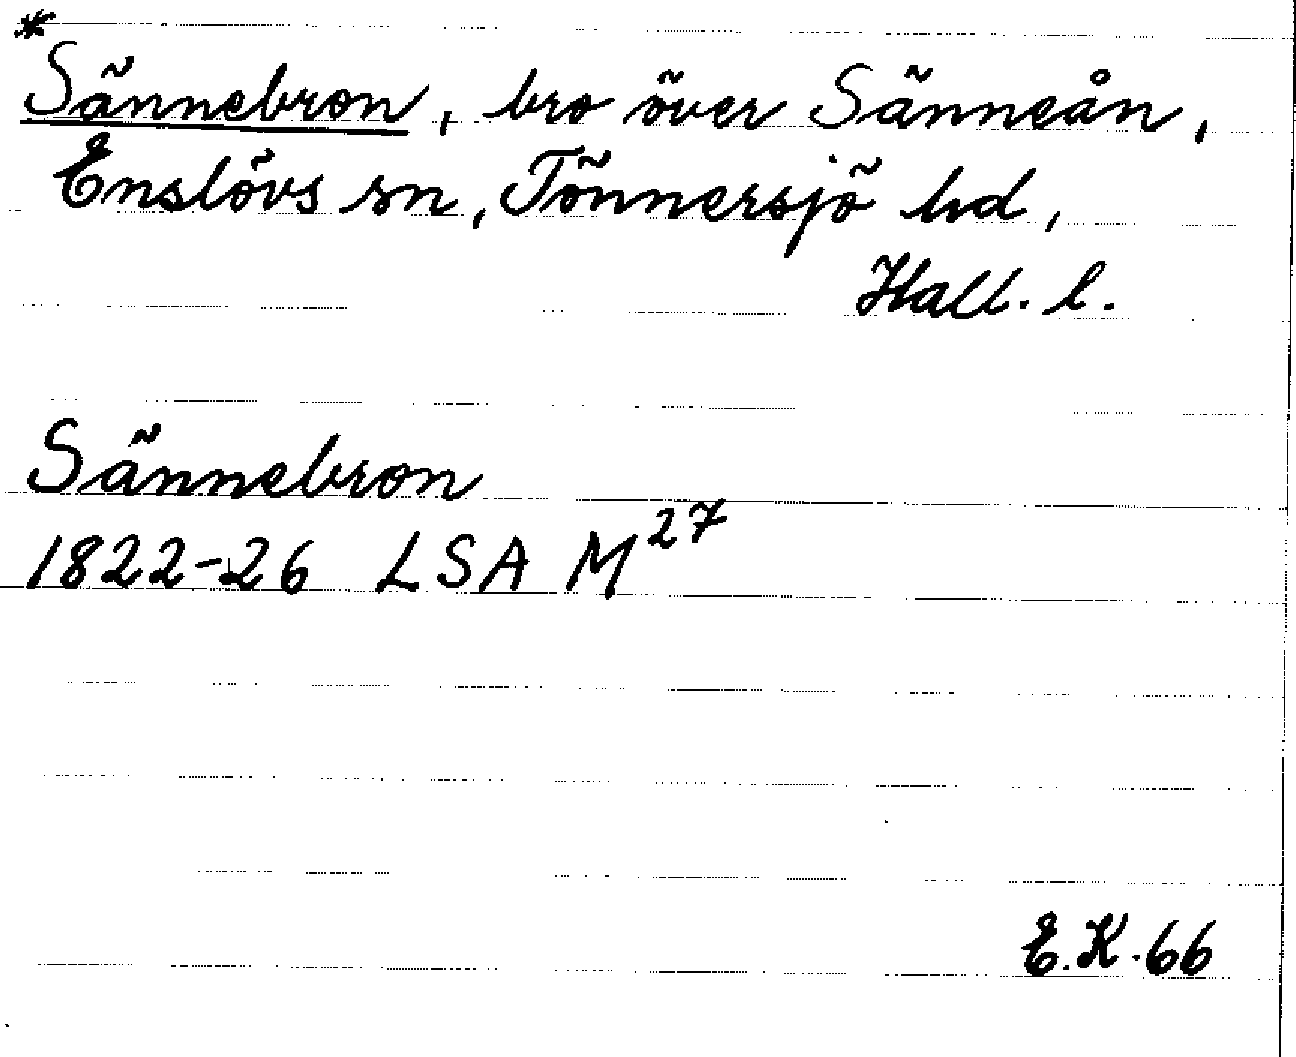 *
Sännebron, bro över Sänneån,
Enslövs sn, Tönnersjö hd,
Hall. l.
Sännebron
1822-26 LSA M²⁷
E.K.66